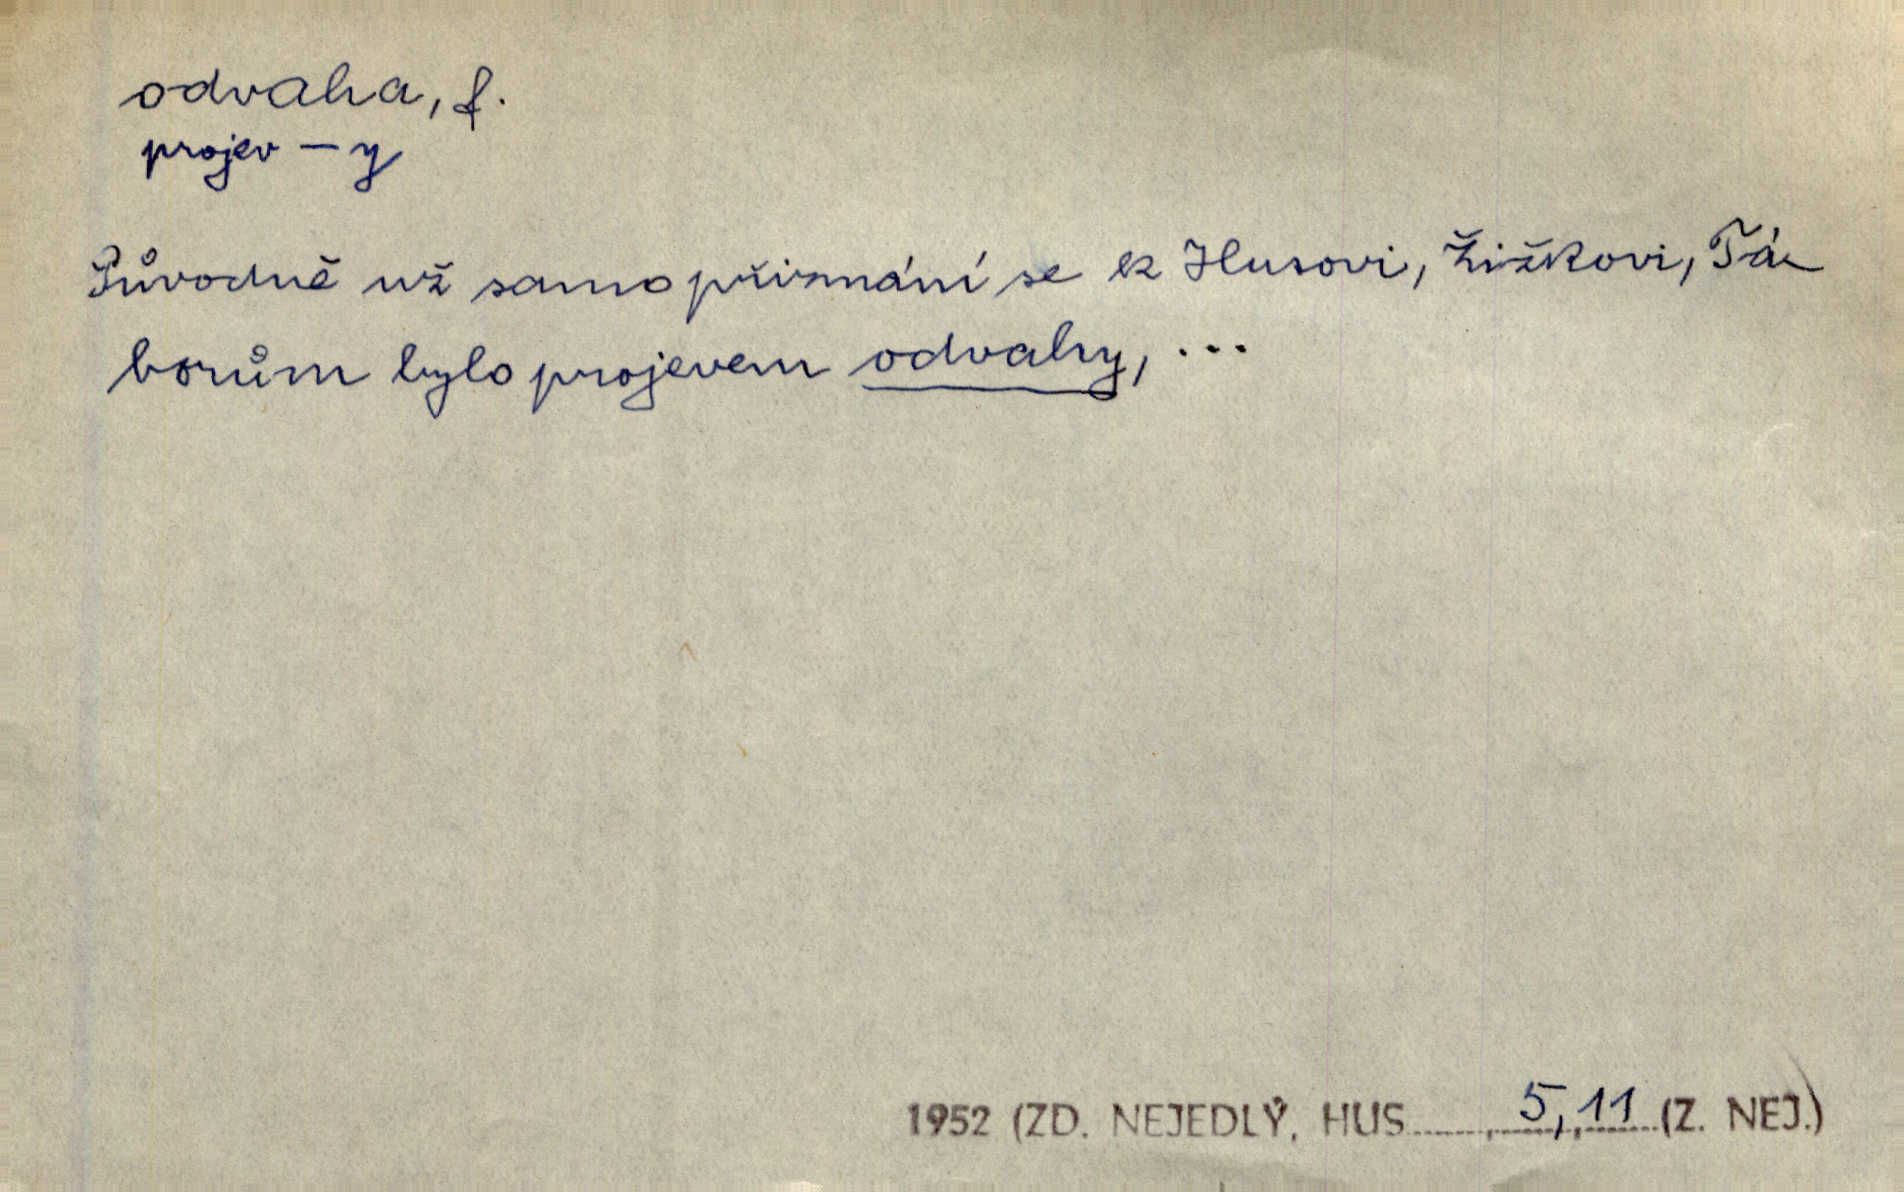 odvaha, f.
projev – y
Původně už samo přiznání se k Husovi, Žižkovi, Tá-
borům bylo projevem odvahy, ...
1952 (ZD. NEJEDLÝ, HUS......,5,,11...(Z. NEJ.)